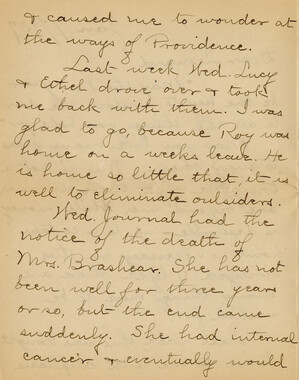 & caused me to wonder at
the ways of Providence.
Last week Wed. Lucy
& Ethel drove over & took
me back with them. I was
glad to go, because Roy was
home on a weeks leave. He
is home so little that it is
well to eliminate outsiders.
Wed. Journal had the
notice of the death of
Mrs. Brashear. She has not
been well for three years
or so, but the end came
suddenly. She had internal
cancer & eventually would